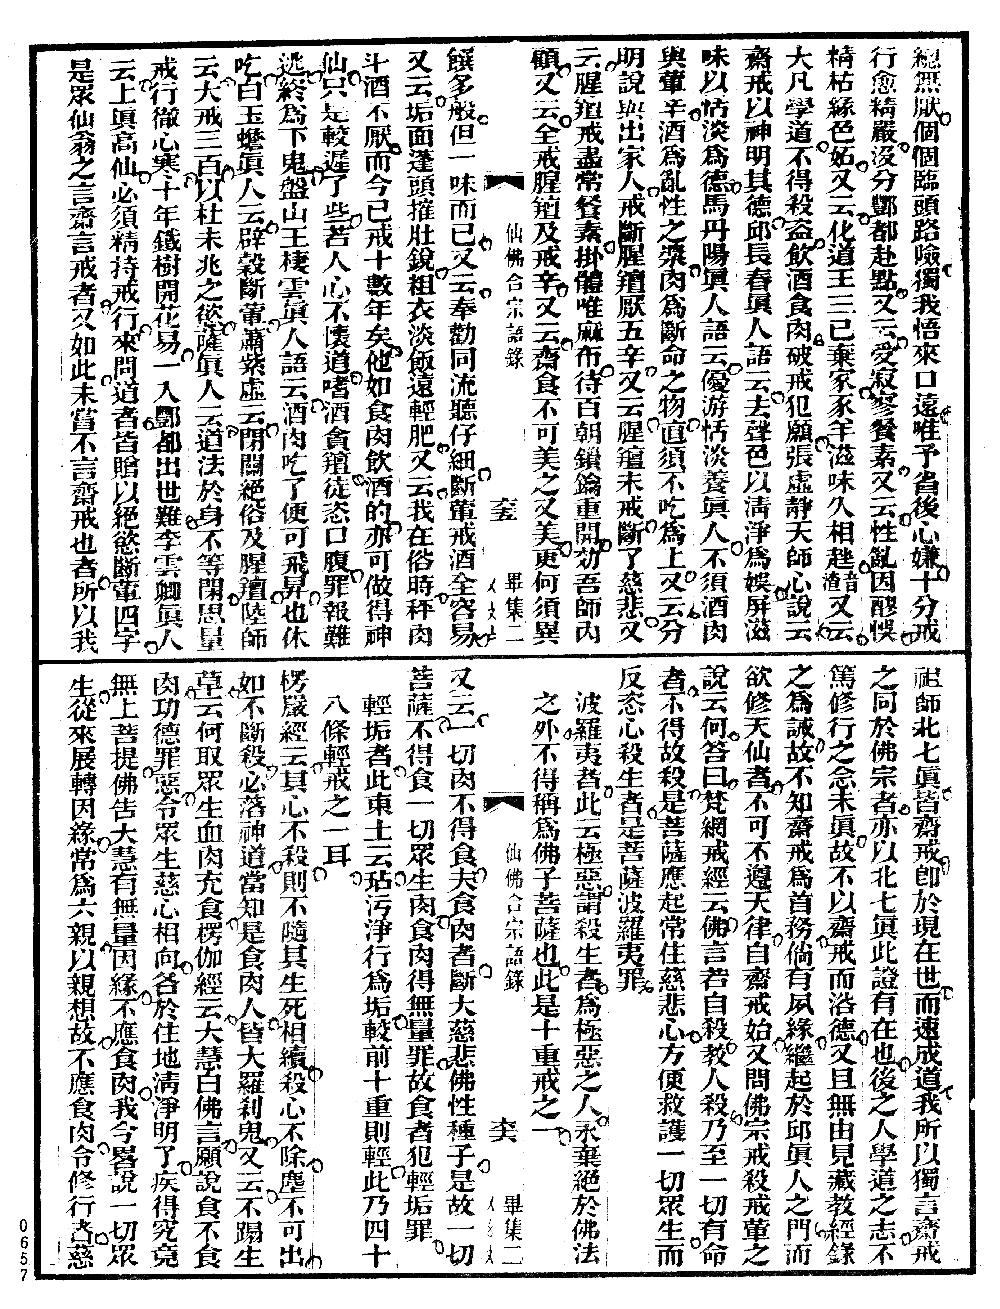 總無厭個個臨頭路險獨我悟來口遠唯予省後心嫌十分戒
行愈精嚴沒分酆都赴點又云受寂寥餐素又云性亂因醪悞
精枯緣色妬又云化道王三已棄冢豕羊滋味久相趂音渣又云
大凡學道不得殺盜飲酒食肉破戒犯願張虛靜天師心說云
齋戒以神明其德邱長春眞人語云去聲色以清淨爲娛屏滋
味以恬淡爲德馬丹陽眞人語云優游恬淡養眞人不須酒肉
與葷辛酒爲亂性之漿肉爲斷命之物直須不吃爲上又云分
明說與出家人戒斷腥羶厭五辛又云腥羶未戒斷了慈悲又
云腥羶戒盡常餐素掛體唯麻布待百朝鎖鑰重開効吾師內
顧又云全戒腥羶及戒辛又云齋食不可美之又美更何須異
仙佛合宗語錄
畢集二
饌多般但一味而已又云奉勸同流聽仔細斷葷戒酒全容易
又云垢面蓬頭摧壯銳粗衣淡飯遠輕肥又云我在俗時秤肉
斗酒不厭而今已戒十數年矣他如食肉飲酒的亦可做得神
仙只是較遲了些若人心不懷道嗜酒貪羶徒恣口腹罪報難
逃終爲下鬼盤山王棲雲眞人語云酒肉吃了便可飛昇也休
吃白玉蟾眞人云辟穀斷葷蕭紫虛云閉關絕俗及腥羶陸師
云大戒三百以杜未兆之慾薩眞人云道法於身不等閑思量
戒行徹心寒十年鐵樹開花易一入酆都出世難李雲卿眞人
云上眞高仙必須精持戒行來問道者皆贈以絕慾斷葷四字
是眾仙翁之言齋言戒者又如此未嘗不言齋戒也者所以我
祖師北七眞皆齋戒卽於現在世而速成道我所以獨言齋戒
之同於佛宗者亦以北七眞此證有在也後之人學道之志不
篤修行之念未眞故不以齋戒而浴德又且無由見藏教經錄
之爲誠故不知齋戒爲首務倘有夙緣繼起於邱眞人之門而
欲修天仙者不可不遵天律自齋戒始又問佛宗戒殺戒葷之
說云何答曰梵網戒經云佛言若自殺教人殺乃至一切有命
者不得故殺是菩薩應起常住慈悲心方便救護一切眾生而
反恣心殺生者是菩薩波羅夷罪
波羅夷者此云極惡謂殺生者爲極惡之人永棄絕於佛法
之外不得稱爲佛子菩薩也此是十重戒之一
仙佛合宗語錄
畢集二
又云一切肉不得食夫食肉者斷大慈悲佛性種子是故一切
菩薩不得食一切眾生肉食肉得無量罪故食者犯輕垢罪
輕垢者此東土云玷污淨行爲垢較前十重則輕此乃四十
八條輕戒之一耳
楞嚴經云其心不殺則不隨其生死相續殺心不除塵不可出
如不斷殺必落神道當知是食肉人皆大羅剎鬼又云不蹋生
草云何取眾生血肉充食楞伽經云大慧白佛言願說食不食
肉功德罪惡令眾生慈心相向各於住地清淨明了疾得究竟
無上菩提佛告大慧有無量因緣不應食肉我今畧說一切眾
生從來展轉因緣常爲六親以親想故不應食肉令修行者慈
0657